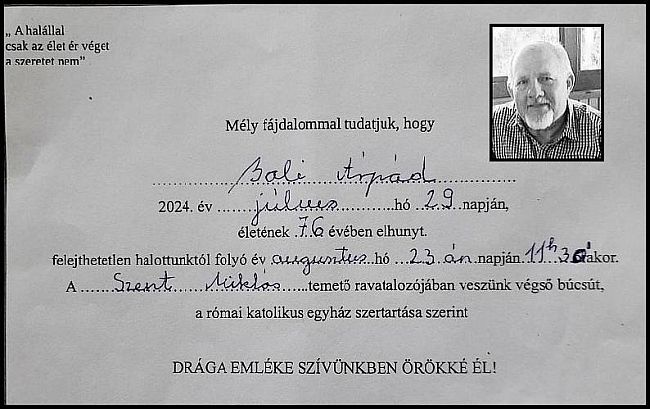 „ A halállal
csak az élet ér véget
a szeretet nem”
Mély fájdalommal tudatjuk, hogy
Bali Árpád
2024. év július hó 29. napján,
életének 76 évében elhunyt.
felejthetetlen halottunktól folyó év augusztus hó 23.án napján 11h 30 órakor.
A Szent Miklós temető ravatalozójában veszünk végső búcsút,
a római katolikus egyház szertartása szerint
DRÁGA EMLÉKE SZÍVÜNKBEN ÖRÖKKÉ ÉL!